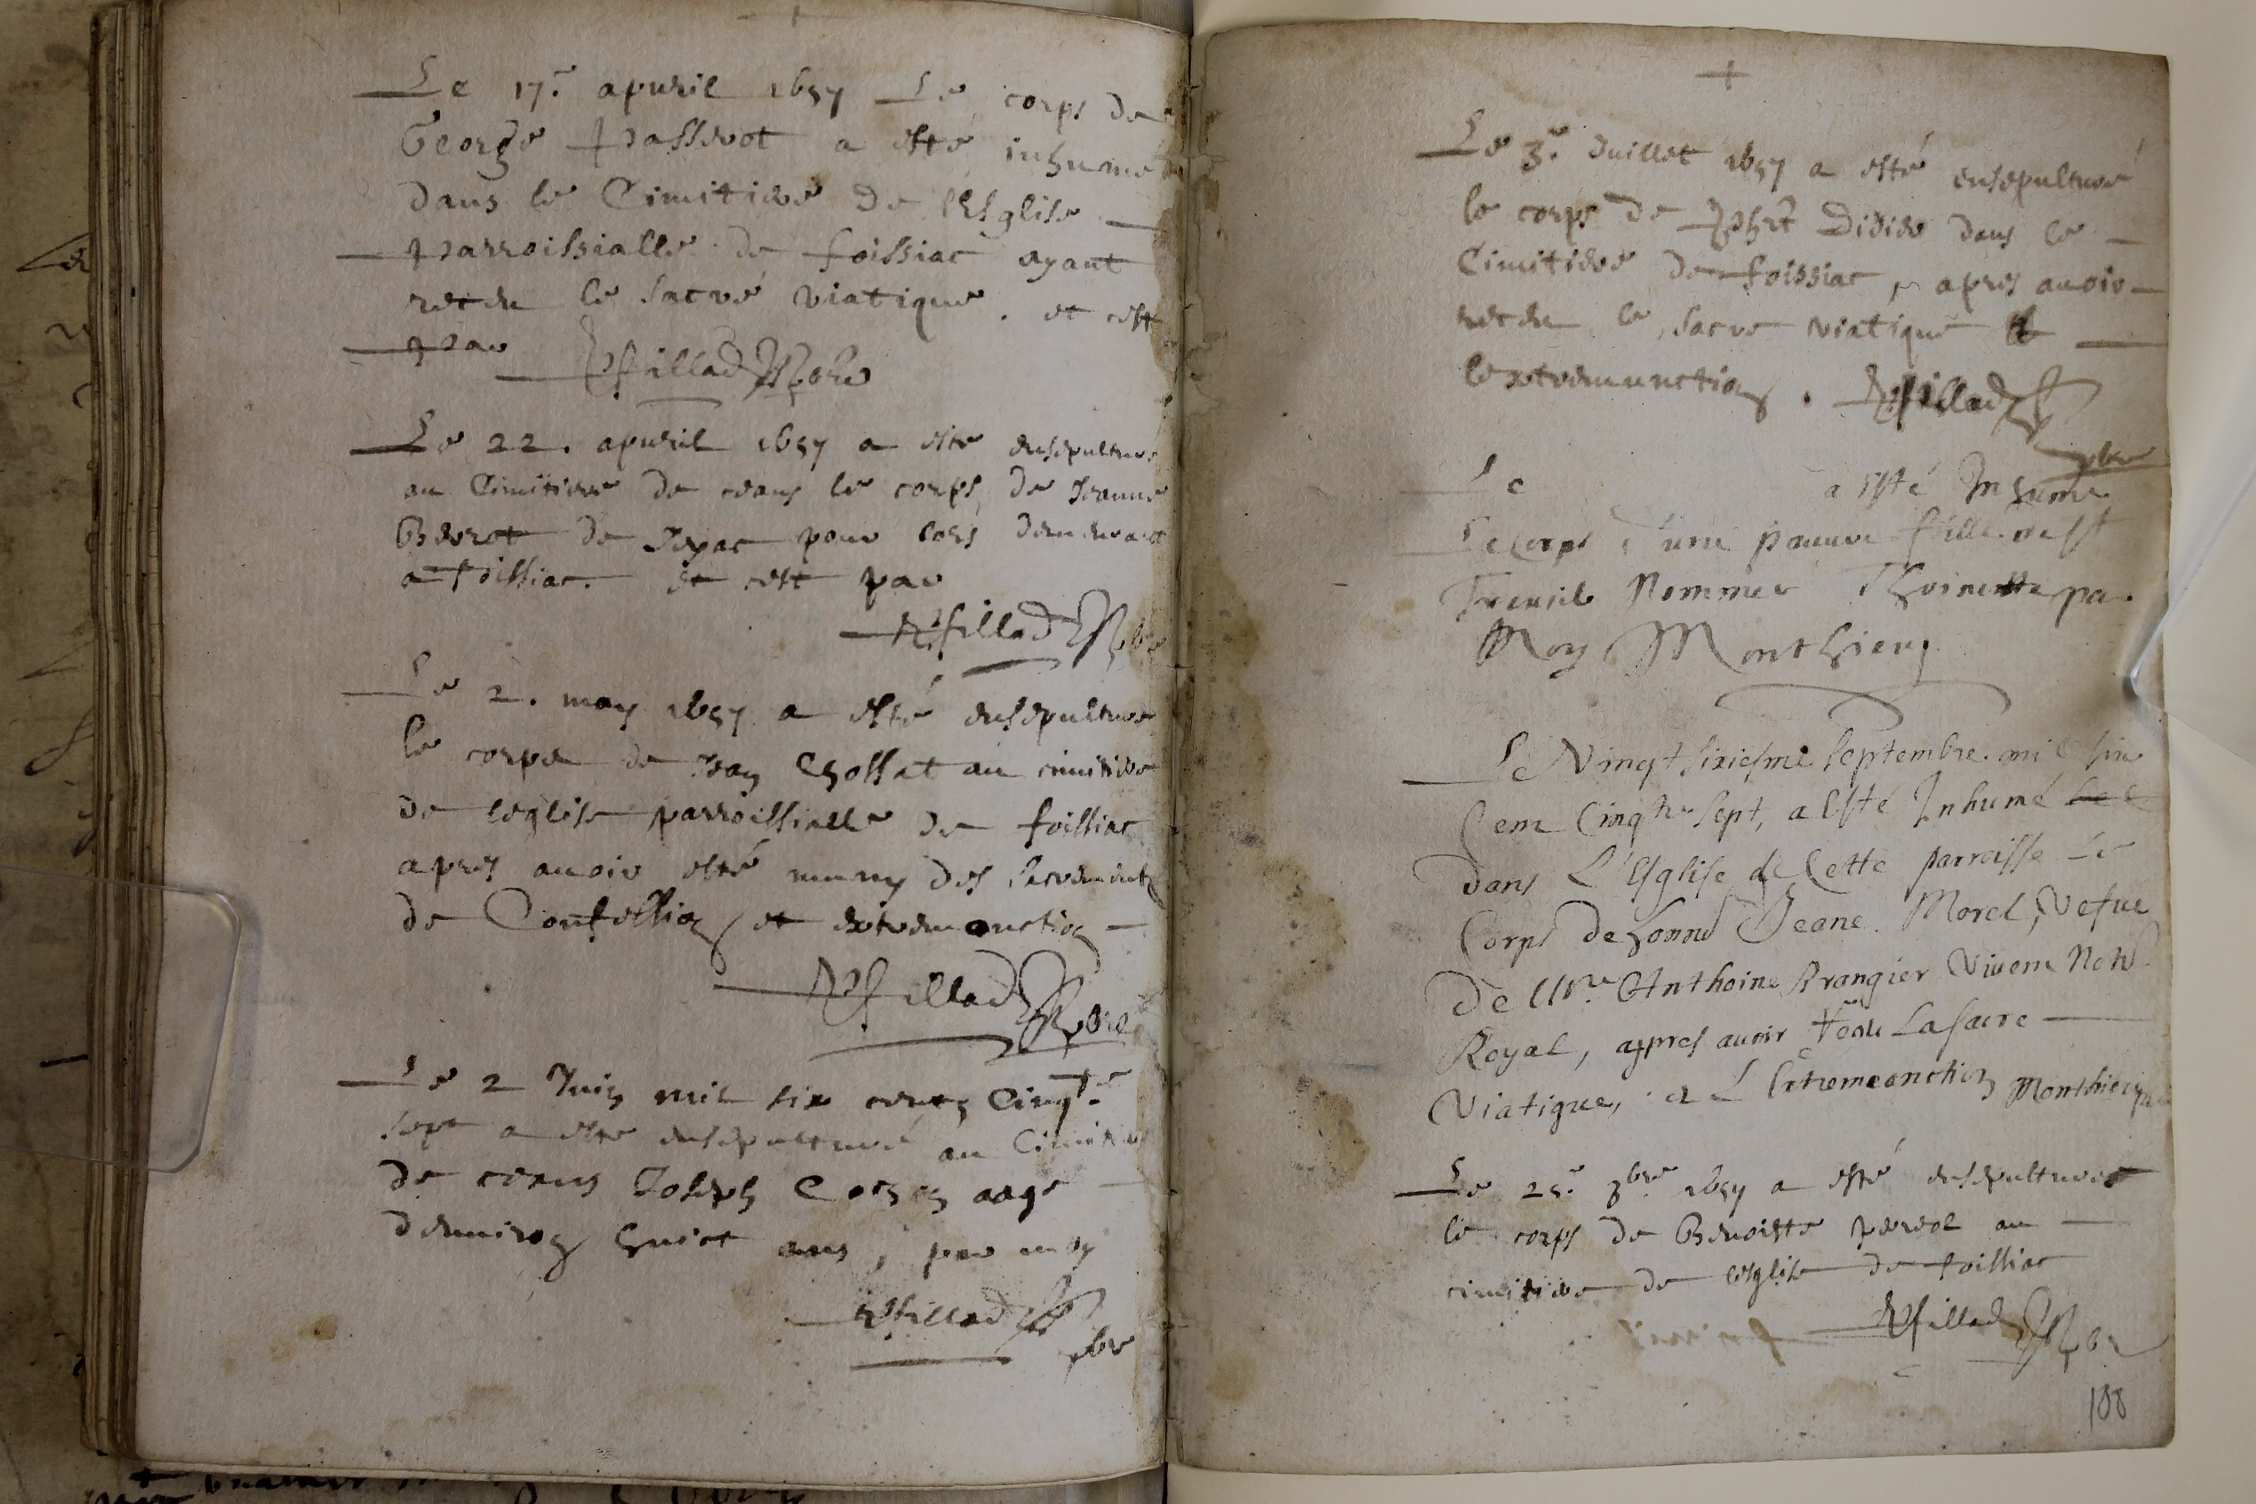 Le 17e apuril 1657 Le corps de
George Passerot a esté inhumé
dans le Cimitiere de l'Esglise
Parroissialle de foissiac ayant
receu le sacré viatique. et cest
par Villad Pbre
Le 22. apuril 1657 a esté ensepulturé
au Cimitiere de ceans le corps de Jeanne
de Jayac pour lors demeurant
a foissiac. et cest par
Villad Pbre
Le 2. may 1657 a esté ensepulturé
le corps de Jean Chossat au cimitiere
de leglise parroissialle de foissiac
apres auoir esté muny des sacrements
de Confession et extremonction
Villad Pbre
Le 2 Juin mil six cents Cinqte
sept a esté ensepulturé au Cimitiere
de ceans Joseph aagé
denuiron huict ans, par moy
Villad pbre
Le 3e Juillet 1657 a esté ensepulturé
le corps de Didier dans le
Cimitiere de foissiac, apres auoir
receu le sacre viatique et
lextremunction. Villad
pbre
Le a Esté Inhumé
Le Corps d'une pauure fille
Nommee Thoinette par
Moy Monthieu
Le Vingt sixiesme septembre mil six
Cent Cinqte sept, a Esté Inhumé
dans L'Esglise de Cette parroisse Le
Corps de honne Jeane Morel, Vefue
De Mre Anthoine Brangier Viuent Notre
Royal, appres auoir Receu La sacre
Viatique, et L Extremeonction Monthieu
Le 25e 1657 a esté ensepulturé
le corps de Benoiste au
cimitiere de lesglise de foissiac
Villad Pbre
188